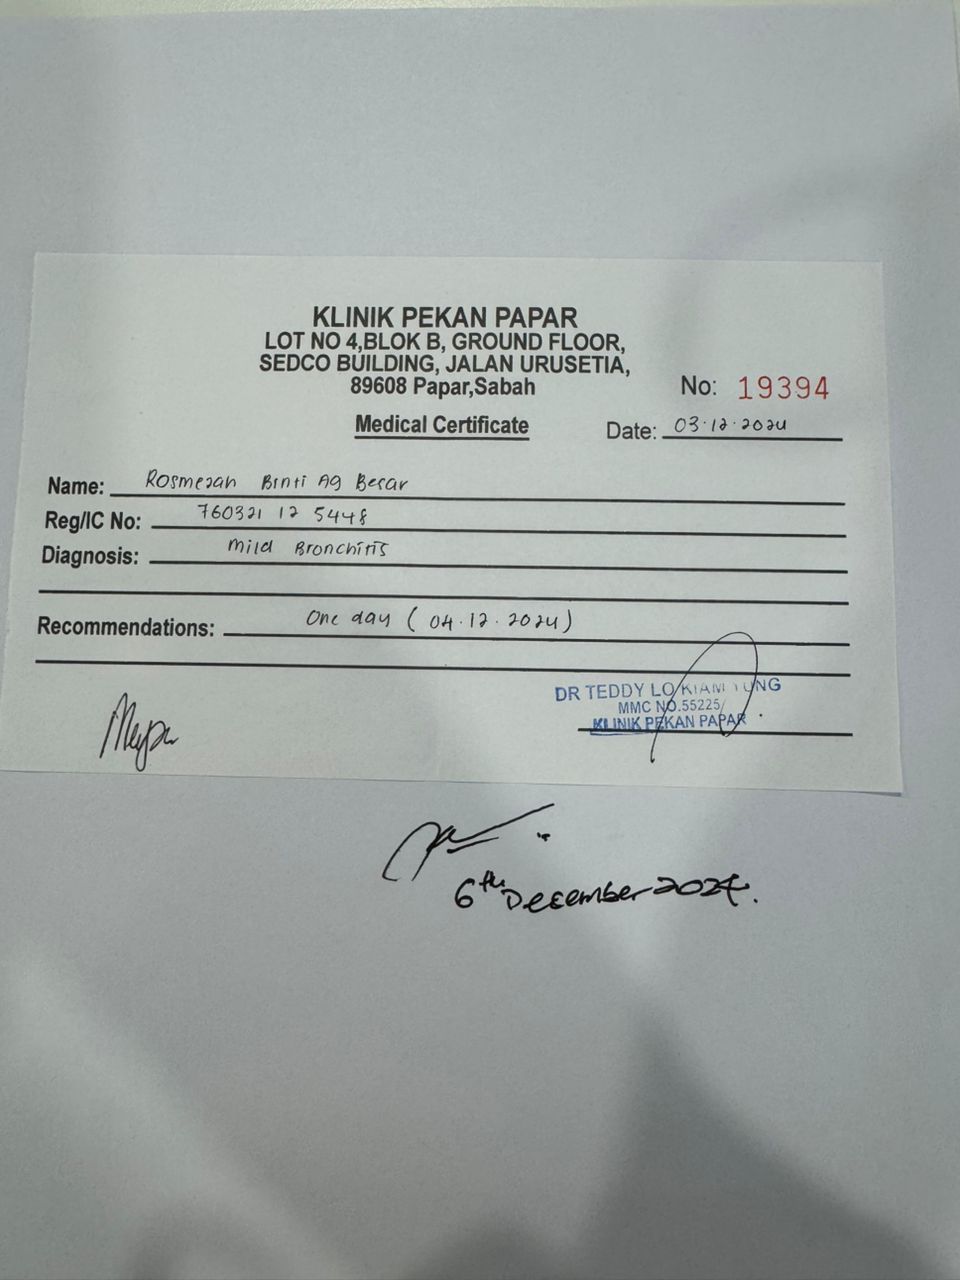 KLINIK PEKAN PAPAR
LOT NO 4,BLOK B, GROUND FLOOR,
SEDCO BUILDING, JALAN URUSETIA,
89608 Papar,Sabah
No: 19394
Medical Certificate
Date: 03.12.2024
Name: Rosmezah Binti Ag Besar
Reg/IC No: 760321 12 5448
Diagnosis: Mild Bronchitis
Recommendations: One day ( 04.12.2024 )
DR TEDDY LO KIAM
MMC NO.55225
KLINIK PEKAN PAPAR
6th December 2024.